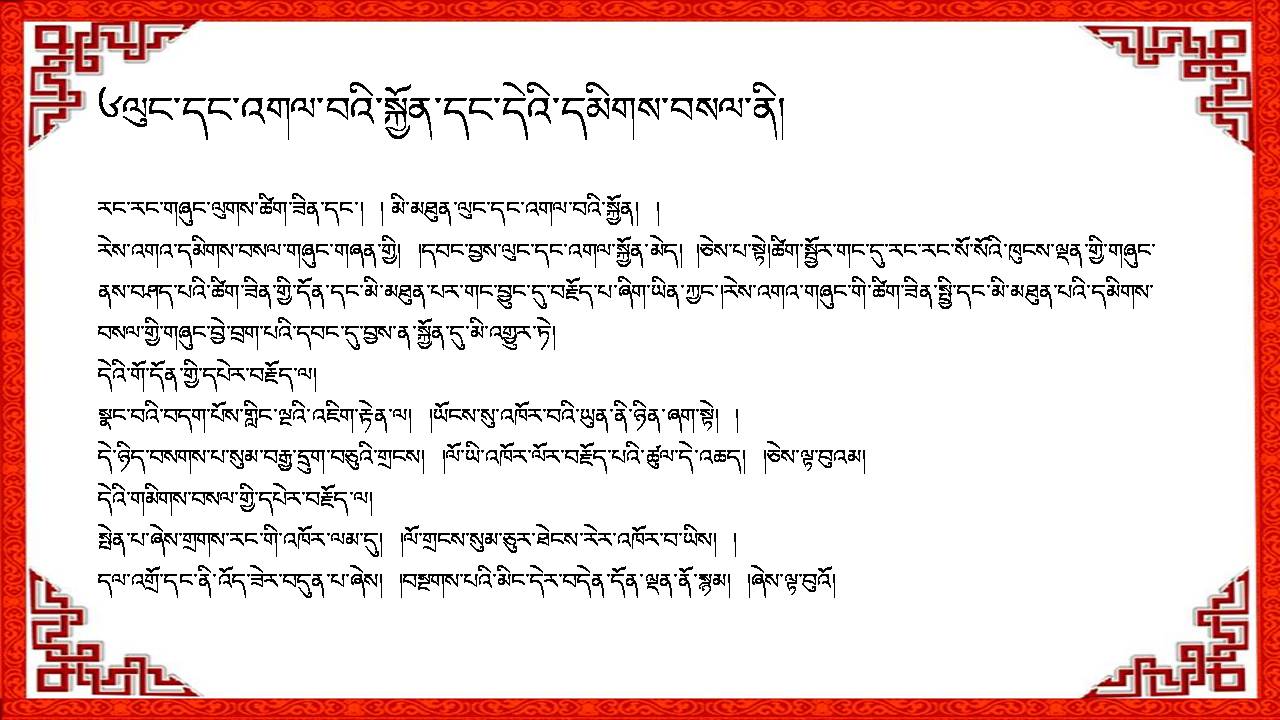 ༦ལུང་དང་འགལ་བའི་སྐྱོན་དང་དེའི་དམིགས་བསལ་ནི།
རང་རང་གཞུང་ལུགས་ཚིག་ཟིན་དང་། ། མི་མཐུན་ལུང་དང་འགལ་བའི་སྐྱོན། །
རེས་འགའ་དམིགས་བསལ་གཞུང་གཞན་གྱི། །དབང་བྱས་ལུང་དང་འགལ་སྐྱོན་མེད། །ཅེས་པ་སྟེ།ཚིག་སྦྱོར་གང་དུ་རང་རང་སོ་སོའི་ཁུངས་ལྡན་གྱི་གཞུང་
ནས་བཤད་པའི་ཚིག་ཟིན་གྱི་དོན་དང་མི་མཐུན་པར་གང་བྱུང་དུ་བརྗོད་པ་ཞིག་ཡིན་ཀྱང་།རེས་འགའ་གཞུང་གི་ཚིག་ཟིན་སྤྱི་དང་མི་མཐུན་པའི་དམིགས་
བསལ་གྱི་གཞུང་བྱེ་བྲག་པའི་དབང་དུ་བྱས་ན་སྐྱོན་དུ་མི་འགྱུར་ཏེ།
དེའི་གོ་དོན་གྱི་དཔེར་བརྗོད་ལ།
སྣང་བའི་བདག་པོས་གླིང་ལྔའི་འཇིག་རྟེན་ལ། །ཡོངས་སུ་འཁོར་བའི་ཡུན་ནི་ཉིན་ཞག་སྟེ། །
དེ་ཉིད་བསགས་པ་སུམ་བརྒྱ་དྲུག་བཅུའི་གྲངས། །ལོ་ཡི་འཁོར་ལོར་བརྗོད་པའི་ཚུལ་དེ་འཆད། །ཅེས་ལྟ་བུའམ།
དེའི་གམིགས་བསལ་གྱི་དཔེར་བརྗོད་ལ།
སྤེན་པ་ཞེས་གྲགས་རང་གི་འཁོར་ལམ་དུ། །ལོ་གྲངས་སུམ་ཅུར་ཐེངས་རེར་འཁོར་བ་ཡིས། །
དལ་འགྲོ་དང་ནི་འོད་ཟེར་བདུན་པ་ཞེས། །བསྔགས་པའི་མིང་དེར་བདེན་དོན་ལྡན་ནོ་སྙམ། །ཞེས་ལྟ་བུའོ།